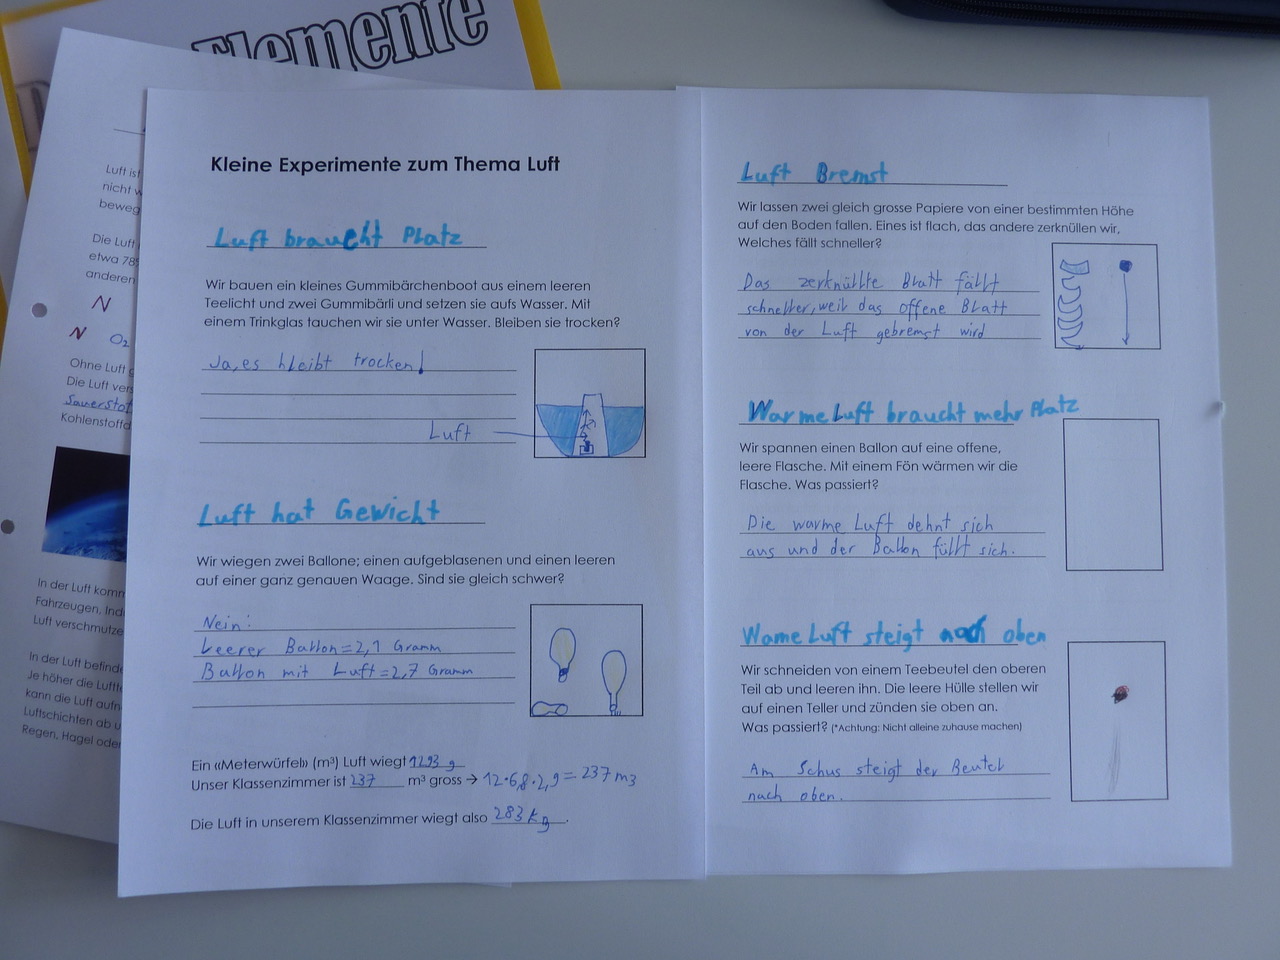 Elemente
Luft ist
nicht w
beweg
Die Luft
etwa 78
anderen
N
N O2
Ohne Luft
Die Luft vers
Sauerstof
Kohlenstoffd
In der Luft komm
Fahrzeugen, Indu
Luft verschmutze
In der Luft befinde
Je höher die Luftte
kann die Luft aufn
Luftschichten ab u
Regen, Hagel oder
Kleine Experimente zum Thema Luft
Luft braucht Platz
Wir bauen ein kleines Gummibärchenboot aus einem leeren
Teelicht und zwei Gummibärli und setzen sie aufs Wasser. Mit
einem Trinkglas tauchen wir sie unter Wasser. Bleiben sie trocken?
Ja, es bleibt trocken!
Luft
Luft hat Gewicht
Wir wiegen zwei Ballone; einen aufgeblasenen und einen leeren
auf einer ganz genauen Waage. Sind sie gleich schwer?
Nein:
Leerer Ballon=2,1 Gramm
Ballon mit Luft=2,7 Gramm
Ein «Meterwürfel» (m³) Luft wiegt 1293 g
Unser Klassenzimmer ist 237 m³ gross → 12·6,8·2,9=237 m3
Die Luft in unserem Klassenzimmer wiegt also 283 kg.
Luft Bremst
Wir lassen zwei gleich grosse Papiere von einer bestimmten Höhe
auf den Boden fallen. Eines ist flach, das andere zerknüllen wir.
Welches fällt schneller?
Das zerknüllte Blatt fällt
schneller, weil das offene Blatt
von der Luft gebremst wird
Warme Luft braucht mehr Platz
Wir spannen einen Ballon auf eine offene,
leere Flasche. Mit einem Fön wärmen wir die
Flasche. Was passiert?
Die warme Luft dehnt sich
aus und der Ballon füllt sich.
Wame Luft steigt nach oben
Wir schneiden von einem Teebeutel den oberen
Teil ab und leeren ihn. Die leere Hülle stellen wir
auf einen Teller und zünden sie oben an.
Was passiert? (*Achtung: Nicht alleine zuhause machen)
Am Schus steigt der Beutel
nach oben.